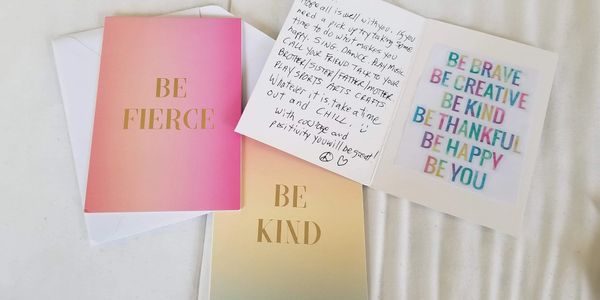 BE
FIERCE
BE
KIND
Hope all is well with you. If you
need a pick up try taking some
time to do what makes you
happy. SING, DANCE, PLAY MUSIC
CALL YOUR FRIEND TALK TO YOUR
BROTHER/SISTER/FATHER/MOTHER
PLAY SPORTS ARTS CRAFTS
Whatever it is, take a time
out and CHILL.
With courage and
positivity you will be great!
BE BRAVE
BE CREATIVE
BE KIND
BE THANKFUL
BE HAPPY
BE YOU